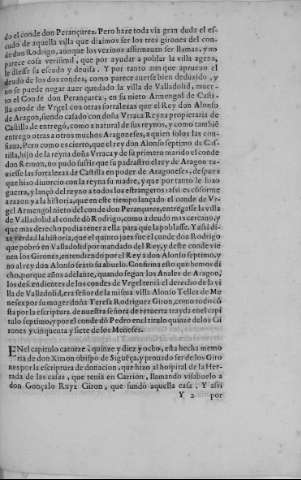 do el conde don Perançurez. Pero haze toda vía gran duda el es-
cudo de aquella villa que diximos ser los tres girones del con-
de don Rodrigo, aunque los vezinos affirman ser llamas, y no
parece cosa verisimil, que por ayudar a poblar la villa agena,
le diesse su escudo y deuisa. Y por tanto aunque aprueuo el
deudo de los dos condes, como parece auerse bien deduzido, y
no se puede negar auer quedado la villa de Valladolid, muer-
to el Conde don Perançurez, en su nieto Armengol de Casti-
lla conde de Vrgel con otras fortalezas que el Rey don Alonso
de Aragon, siendo casado con doña Vrraca Reyna propietaria de
Castilla le entregò, como a natural de sus reynos, y como tambiẽ
entregò otras a otros muchos Aragoneses, a quien solos las con-
fiaua. Pero como es cierto, que el rey don Alonso septimo de Cas-
tilla, hijo de la reyna doña Vrraca y de su primero marido el conde
don Remon, no pudo sufrir que su padrastro el rey de Aragon tu-
uiesse las fortalezas de Castilla en poder de Aragoneses, despues
que hizo diuorcio con la reyna su madre, y que por tanto le hizo
guerra, y lançò del reyno a todos los estrangeros: assi es cõforme
a razon y a la historia, que en este tiempo lançado el conde de Vr-
gel Armengol nieto del conde don Perançurez, entregasse la villa
de Valladolid al conde dõ Rodrigo, como a deudo mas cercano, y
que mas derecho podia tener a ella para que la poblasse. Y assi di-
ze verdad la historia, que el quinto jaez fue el conde don Rodrigo
que pobrò en Valladolid por mandado del Rey, y deste conde vie-
nen los Girones, entendiendo por el Rey a don Alonso septimo, y
no al rey don Alonso sexto su abuelo. Confirma esto que hemos di-
cho, porque años adelante, quando segun los Anales de Aragon,
los descendientes de los condes de Vrgel tenia el derecho de la vi
lla de Valladolid, era señor de la misma villa Alonso Tellez de Me
neses por su muger doña Teresa Rodriguez Giron, como todo cõ-
sta por la escriptura de nuestra señora de retuerta trayda en el capi
tulo septimo, y por el conde dõ Pedro en el titulo quinze de los Gi
rones y cinquenta y siete de los Meneses.
EN el capitulo catorze, quinze y diez y ocho, està hecha memo
ria de don Ximon obispo de Sigueça, y prouado ser de los Giro
nes por la escriptura de donacion, que hizo al hospital de la Her-
rada de las casas, que tenia en Carrion, llamando visabuelo a
don Gonçalo Ruyz Giron, que fundò aquella casa. Y assi
Y 2 por